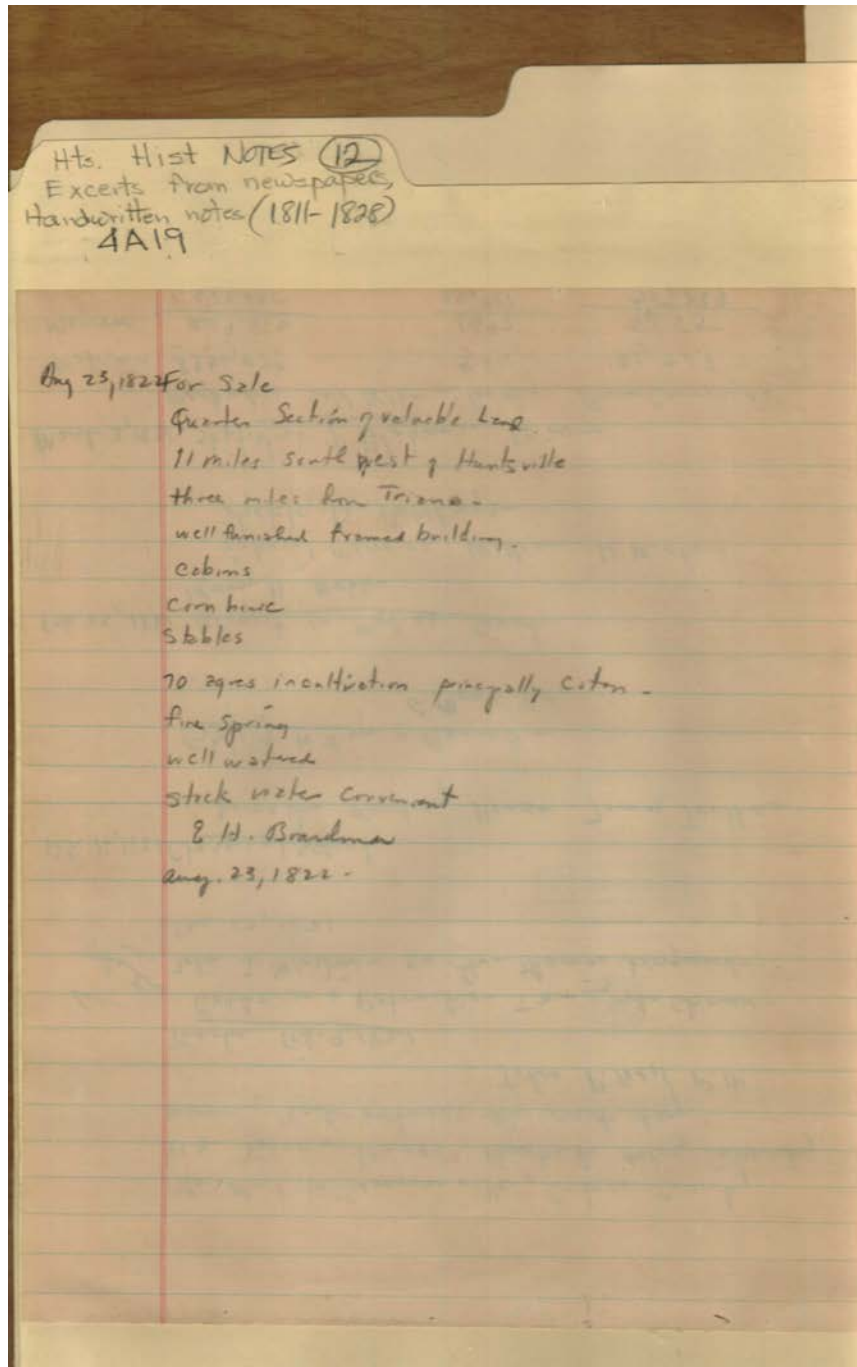 Hts. Hist NOTES (12)
Excerts from newspapers,
Handwritten notes (1811-1828)
4A19
Aug 23, 1822 For Sale
Quarter Section of valuable Land.
11 miles south west of Huntsville
three miles from Triana-
well furnished framed building.
Cabins
Corn house
Stables
70 acres in cultivation principally Coton-
fine Spring
well watered
stock water convenient
E H. Boardman
Aug. 23, 1822-